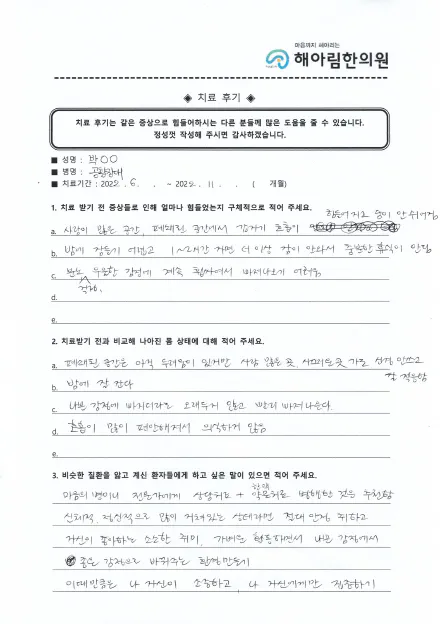 마음까지 헤아리는
해아림한의원
◈ 치료 후기 ◈
치료 후기는 같은 증상으로 힘들어하시는 다른 분들께 많은 도움을 줄 수 있습니다.
정성껏 작성해 주시면 감사하겠습니다.
■ 성명 : 박○○
■ 병명 : 공황장애
■ 치료기간 : 2022. 6. . ~ 2022. 11. . ( 개월)
1. 치료 받기 전 증상들로 인해 얼마나 힘들었는지 구체적으로 적어 주세요.
힘들어지고 숨이 안 쉬어짐
a. 사람이 많은 공간, 폐쇄된 공간에서 갑자기 호흡이
b. 밤에 잠들기 어렵고 1~2시간 자면 더 이상 잠이 안와서 충분한 휴식이 안됨
c. 분노, 우울한 감정에 계속 휩싸여서 빠져나오기 어려움
걱정,
d.
e.
2. 치료받기 전과 비교해 나아진 몸 상태에 대해 적어 주세요.
a. 폐쇄된 공간은 아직 두려움이 있지만 사람 많은 곳, 시끄러운 곳 가도 신경 안쓰고
잘 적응함
b. 밤에 잘 잔다
c. 나쁜 감정에 빠지더라도 오래두지 않고 빨리 빠져나온다.
d. 호흡이 많이 편안해져서 의식하지 않음
e.
3. 비슷한 질환을 앓고 계신 환자들에게 하고 싶은 말이 있으면 적어 주세요.
한약
마음의 병이니 전문가에게 상담치료 + 약물치료 병행한 것을 추천함
신체적, 정신적으로 많이 지쳐있는 상태라면 절대 안정 취하고
자신이 좋아하는 소소한 취미, 가벼운 운동하면서 나쁜 감정에서
좋은 감정으로 바꿔주는 환경만들기
이때만큼은 나 자신이 소중하고, 나 자신에게만 집중하기